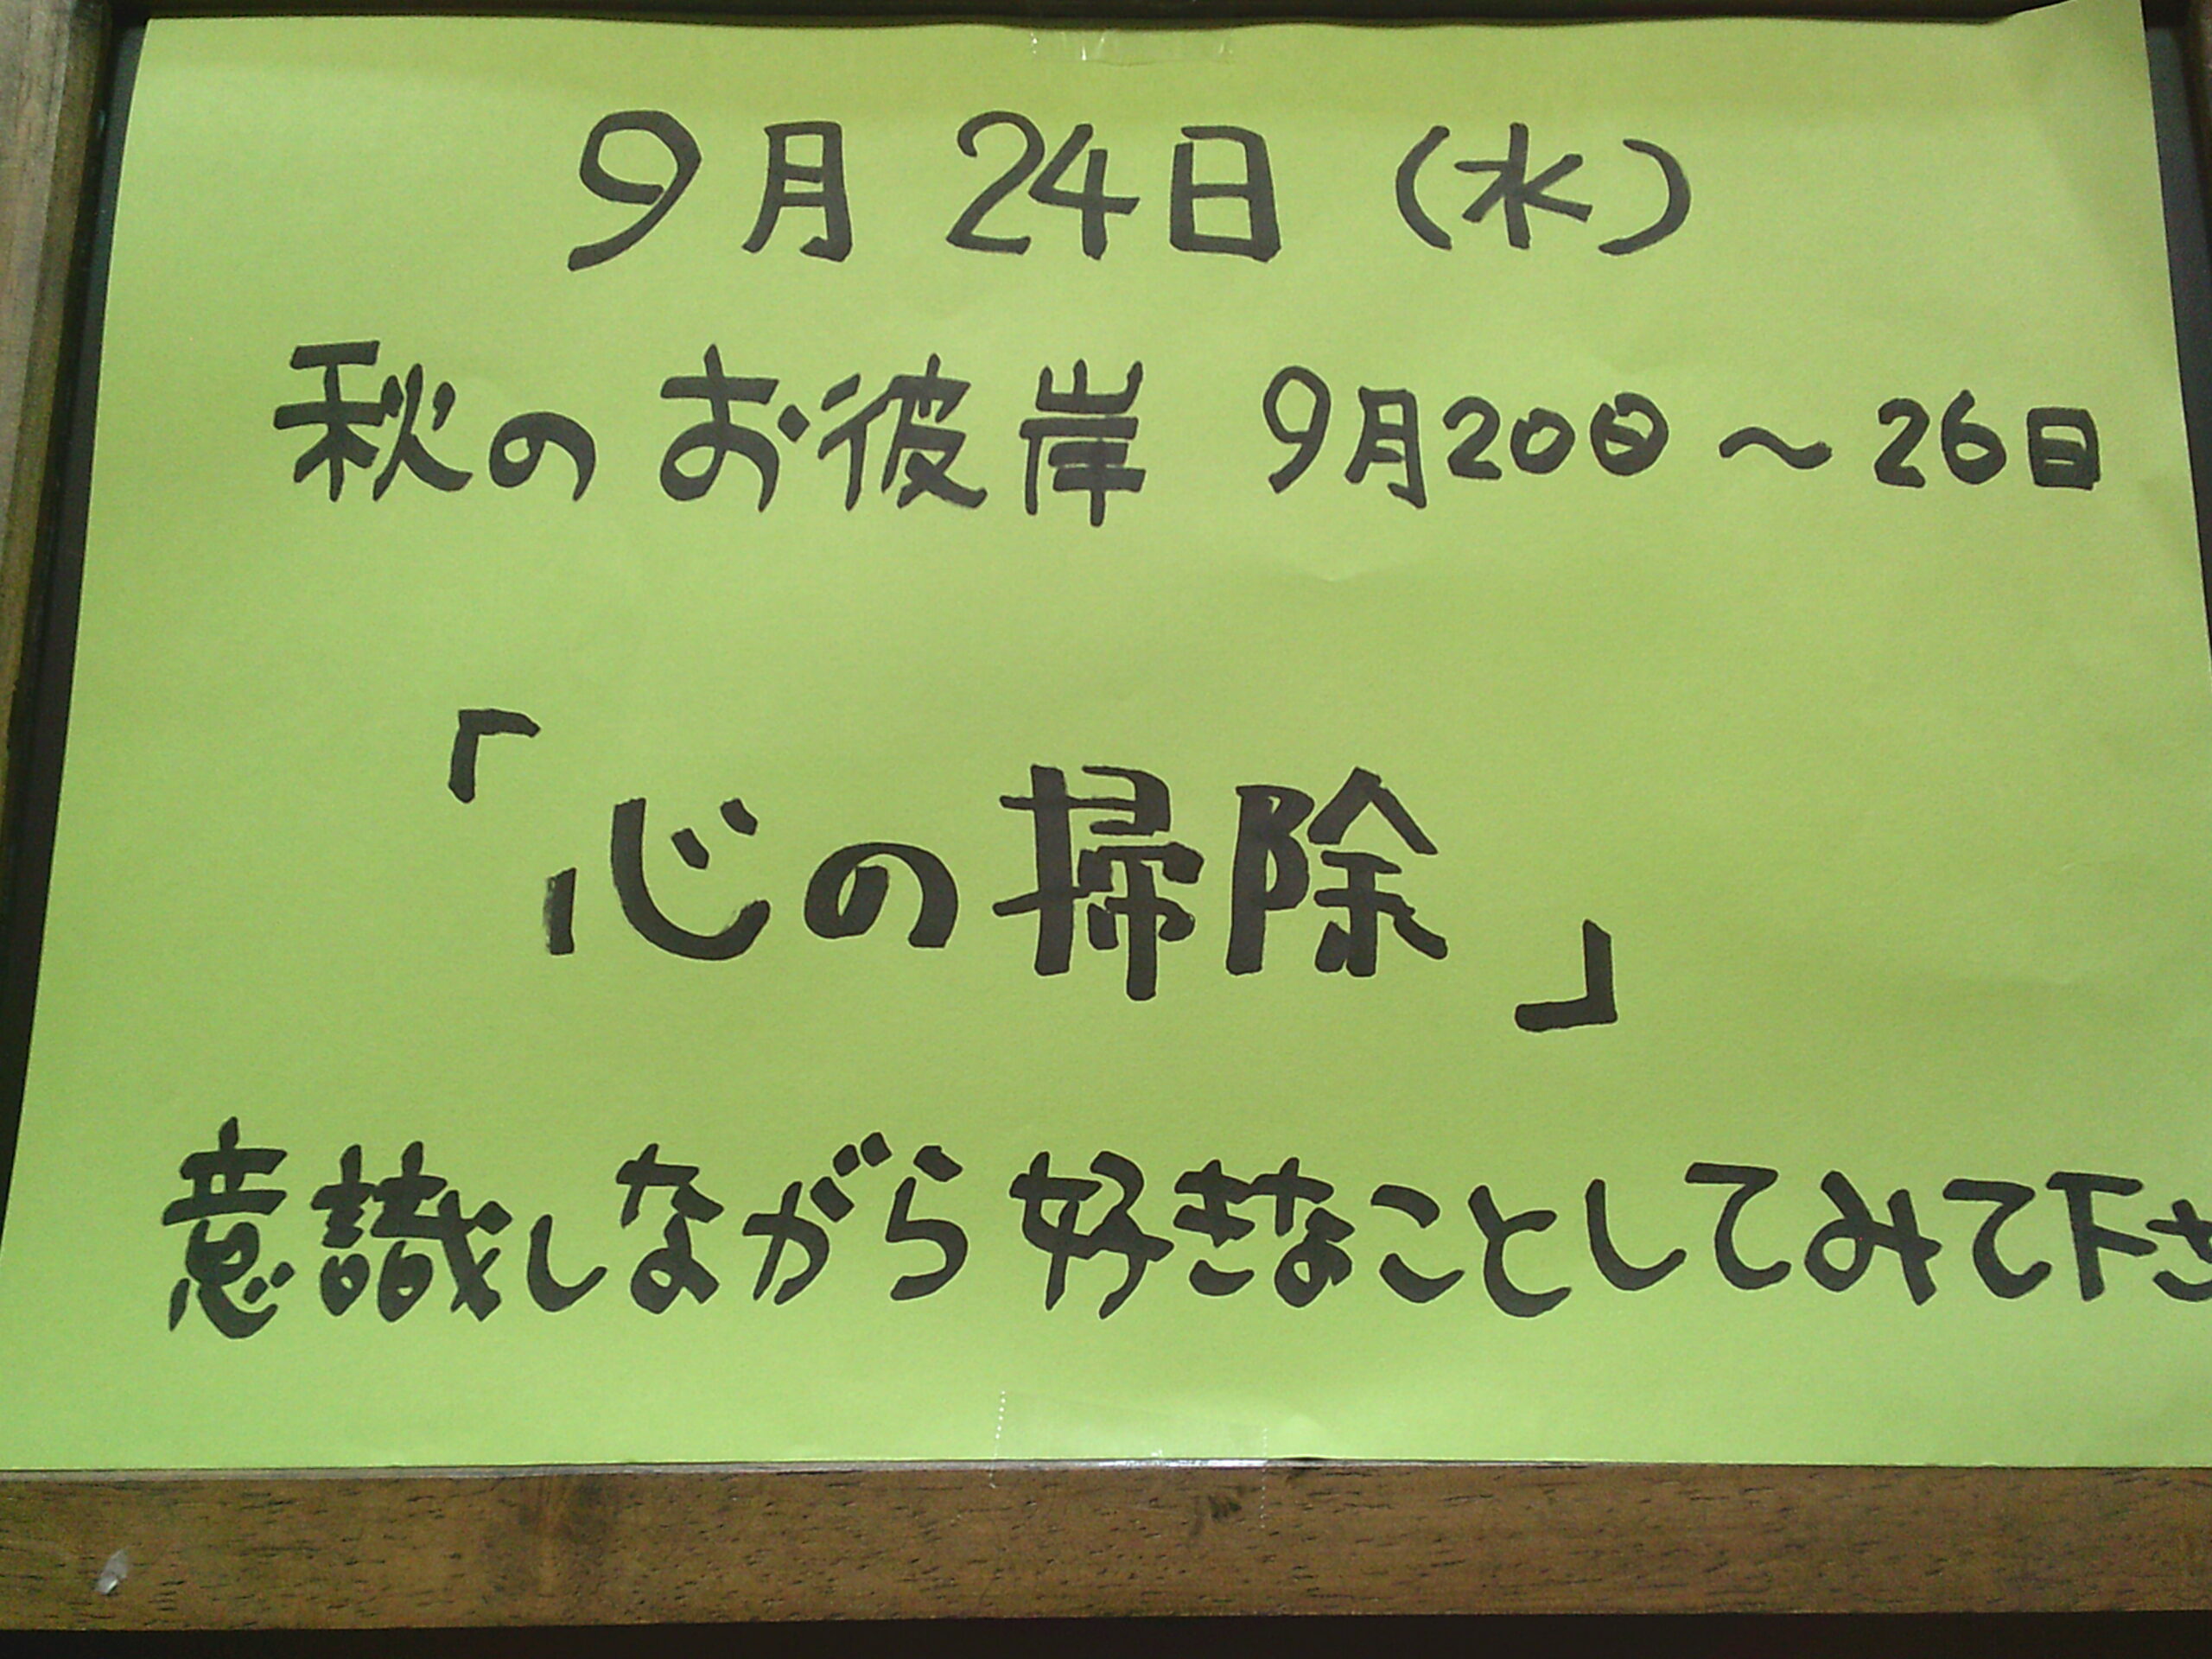 9月24日（水）
秋のお彼岸 9月20日～26日
「心の掃除」
意識しながら好きなことしてみて下さ